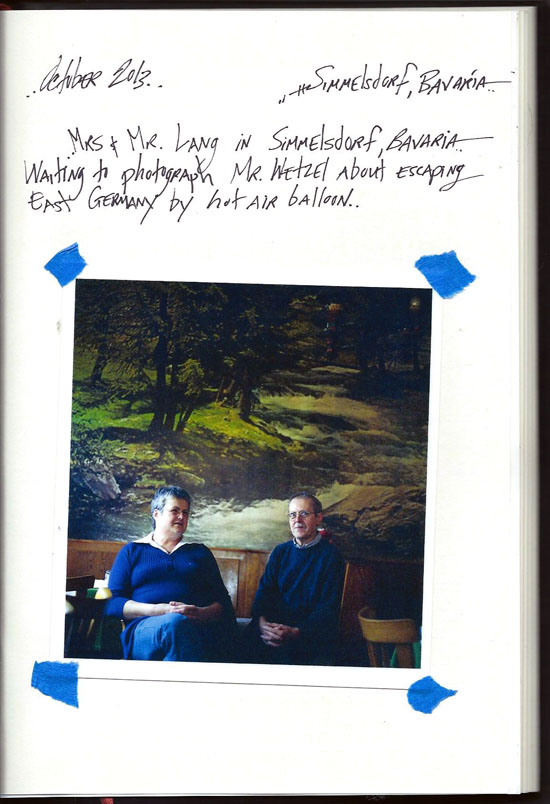 October 2013..
Simmelsdorf, Bavaria..
Mrs & Mr. Lang in Simmelsdorf, Bavaria..
Waiting to photograph Mr. Wetzel about escaping
East Germany by hot air balloon..